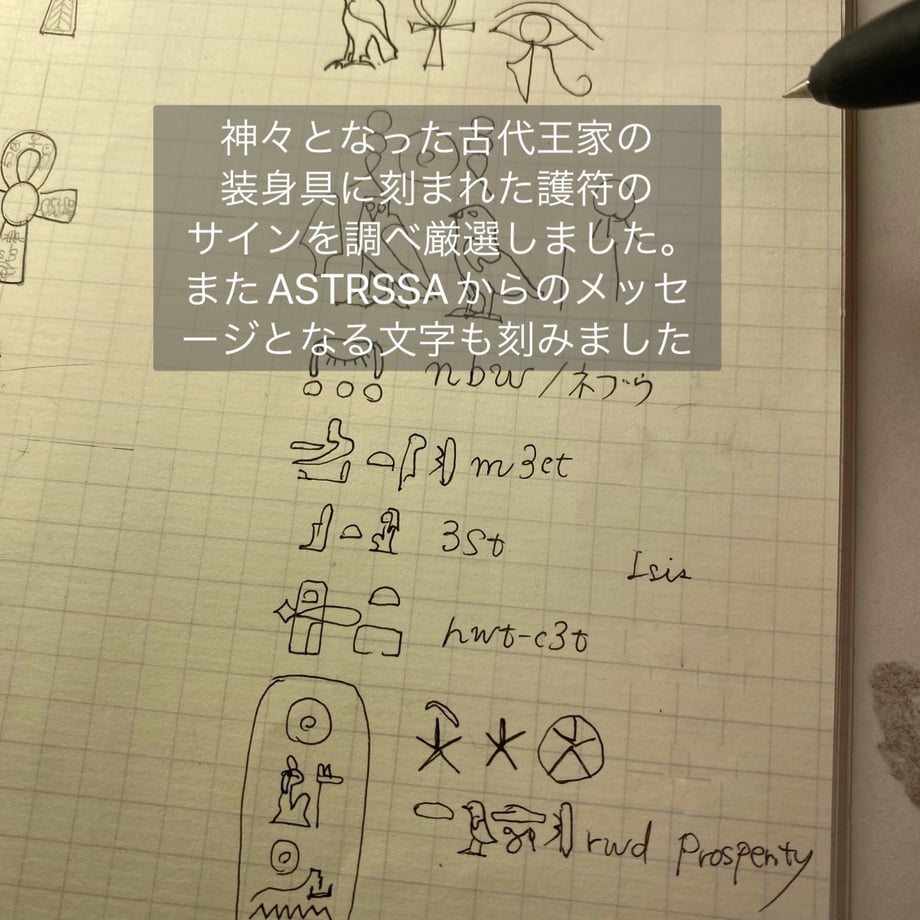 神々となった古代王家の
装身具に刻まれた護符の
サインを調べ厳選しました。
またASTRSSAからのメッセ
ージとなる文字も刻みました
nbw/ネブウ
m3et
3St
Isis
hwt-c3t
rwd Prosperity